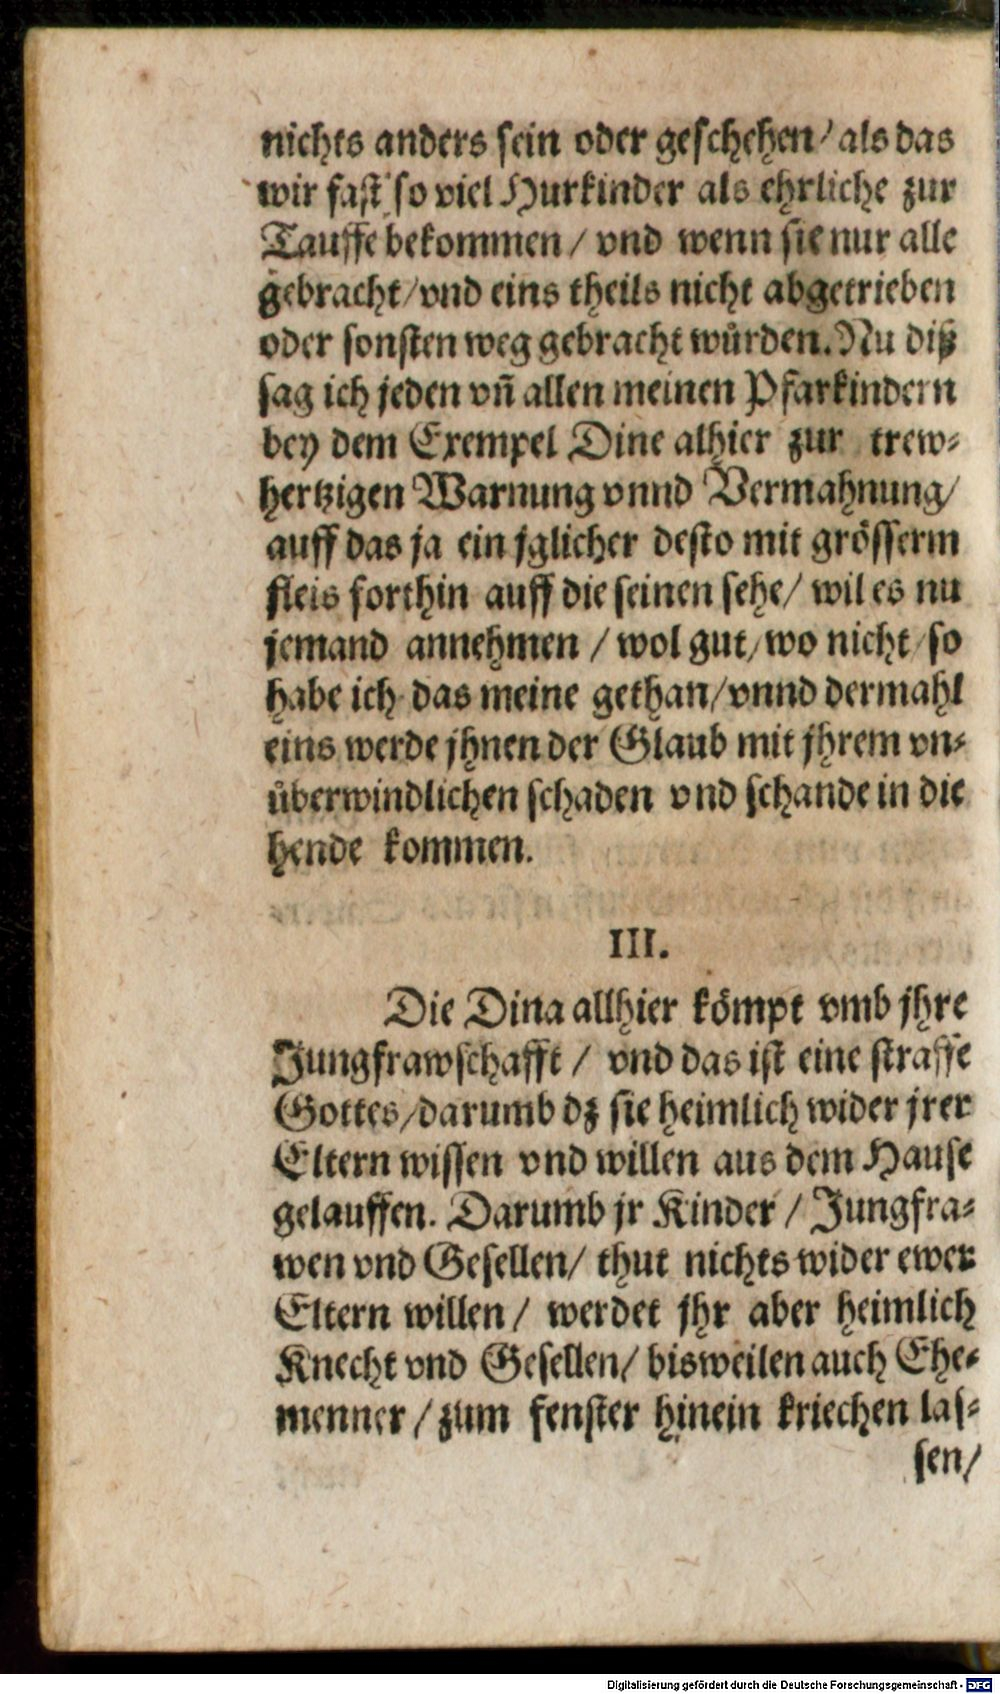 nichts anders sein oder geschehen/ als das
wir fast so viel Hurkinder als ehrliche zur
Tauffe bekommen / vnd wenn sie nur alle
gebracht/ vnd eins theils nicht abgetrieben
oder sonsten weg gebracht wuͤrden. Nu diß
sag ich jeden vñ allen meinen Pfarkindern
bey dem Exempel Dine alhier zur trew-
hertzigen Warnung vnnd Vermahnung/
auff das ja ein jglicher desto mit groͤsserm
fleis forthin auff die seinen sehe/ wil es nu
jemand annehmen / wol gut/ wo nicht/ so
habe ich das meine gethan/ vnnd dermahl
eins werde jhnen der Glaub mit jhrem vn-
uͤberwindlichen schaden vnd schande in die
hende kommen.
III.
Die Dina allhier koͤmpt vmb jhre
Jungfrawschafft / vnd das ist eine straffe
Gottes/ darumb dz sie heimlich wider jrer
Eltern wissen vnd willen aus dem Hause
gelauffen. Darumb jr Kinder / Jungfra-
wen vnd Gesellen/ thut nichts wider ewer
Eltern willen / werdet jhr aber heimlich
Knecht vnd Gesellen/ bisweilen auch Ehe-
menner / zum fenster hinein kriechen las-
sen/
Digitalisierung gefördert durch die Deutsche Forschungsgemeinschaft - DFG